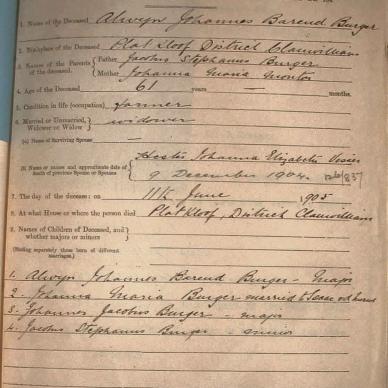 1. Name of the Deceased Alwyn Johannes Barend Burger
2. Birthplace of the Deceased Plat Kloof District Clanwilliam
3. Names of the Parents of the deceased. Father Jacobus Stephanus Burger
Mother Johanna Maria
4. Age of the Deceased 61 years — months.
5. Condition in life (occupation) farmer
6. Married or Unmarried, Widower or Widow widower
(a) Name of Surviving Spouse
(b) Name or names and approximate date of death of previous Spouse or Spouses Hester Johanna Elizabeth
9 December 1904
7. The day of the decease: on 11th June 1905
8. At what House or where the person died Plat Kloof, District Clanwilliam
9. Names of Children of Deceased, and whether majors or minors
(Stating separately those born of different marriages).
1. Alwyn Johannes Barend Burger - Major
2. Johanna Maria Burger married to
3. Johannes Jacobus Burger - major
4. Jacobus Stephanus Burger - minor